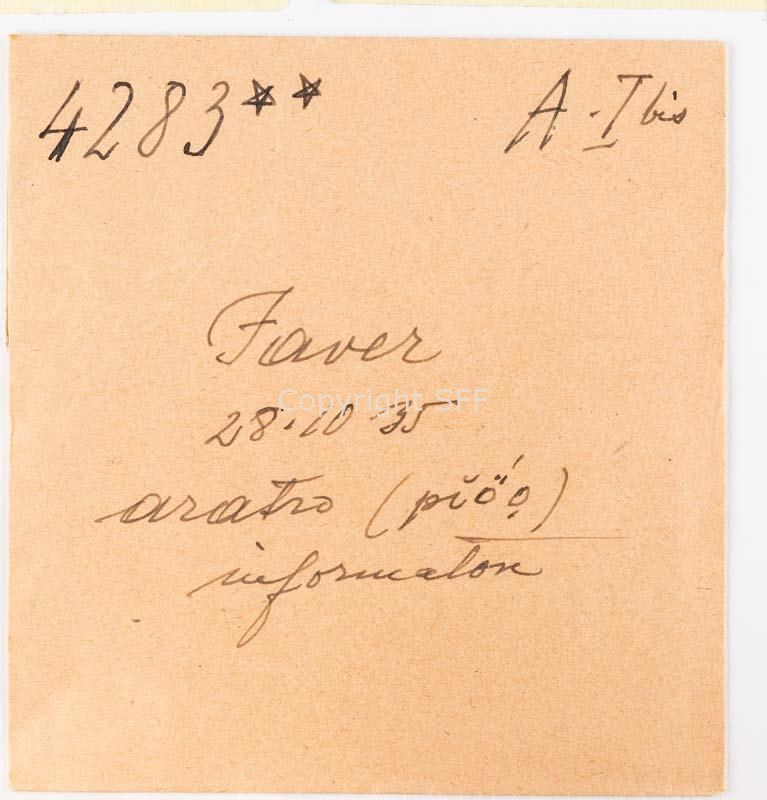 4283** A-I bis
Faver
Copyright SFF
28.10 35
aratro (pĭö́ọ)
informatore